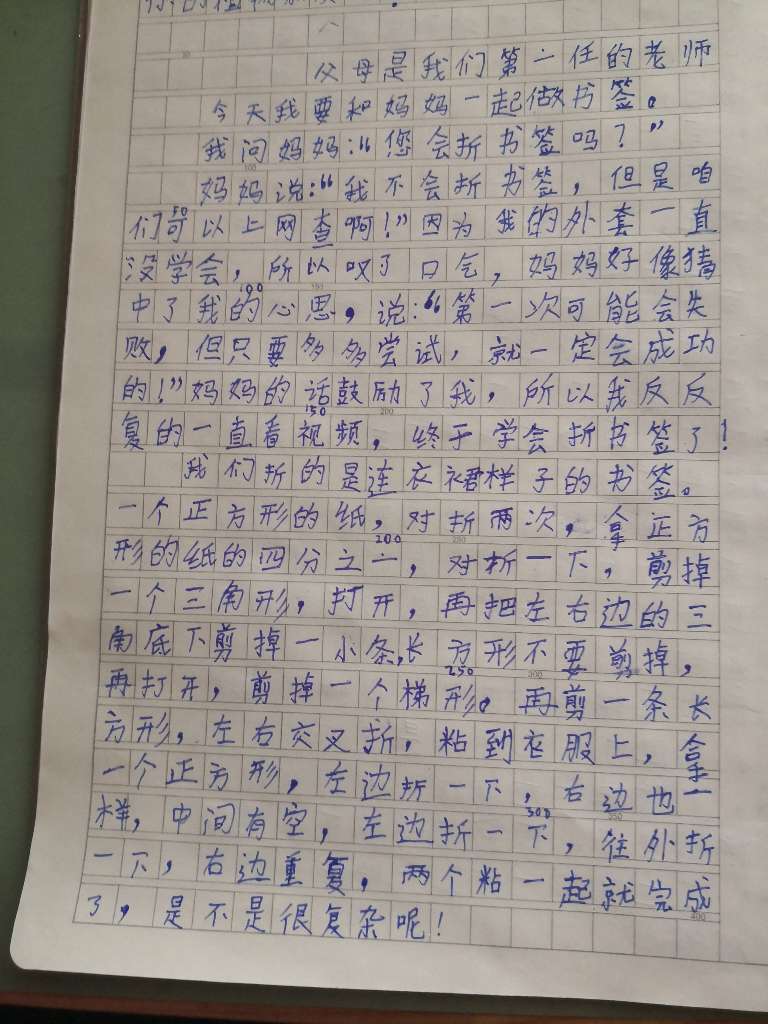 父母是我们第一任的老师
今天我要和妈妈一起做书签。
我问妈妈:“您会折书签吗?”
妈妈说:“我不会折书签,但是咱
们可以上网查啊!”因为我的外套一直
没学会,所以叹了口气,妈妈好像猜
中了我的心思,说:“第一次可能会失
败,但只要多多尝试,就一定会成功
的!”妈妈的话鼓励了我,所以我反反
复的一直看视频,终于学会折书签了!
我们折的是连衣裙样子的书签。
一个正方形的纸,对折两次,拿正方
形的纸的四分之一,对折一下,剪掉
一个三角形,打开,再把左右边的三
角底下剪掉一小条,长方形不要剪掉,
再打开,剪掉一个梯形。再剪一条长
方形,左右交叉折,粘到衣服上,拿
一个正方形,左边折一下,右边也一
样,中间有空,左边折一下,往外折
一下,右边重复,两个粘一起就完成
了,是不是很复杂呢!